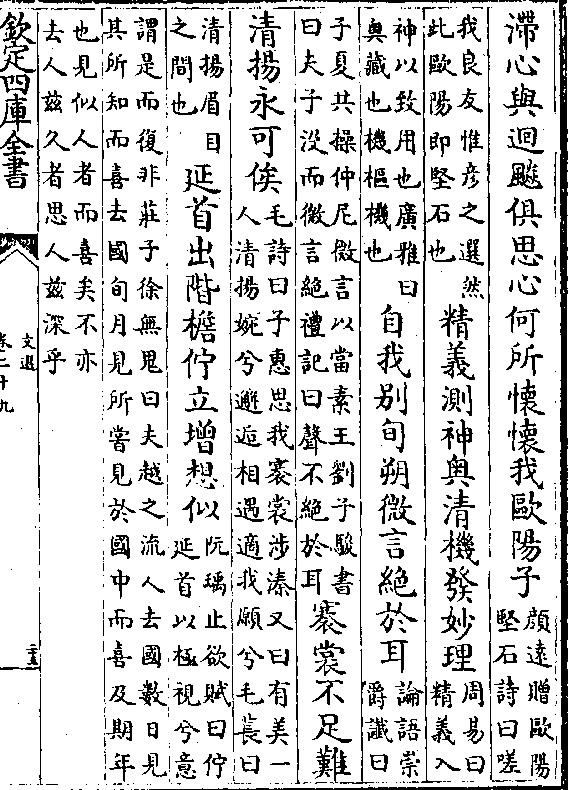 滯心與迴飈俱思心何所懷懷我歐陽子顔遠贈歐陽堅石詩曰嗟
我良友惟彦之選然此歐陽即堅石也精義測神奥清機發妙理周易曰精義入
神以致用也廣雅曰奥藏也機樞機也自我别旬朔微言絶於耳論語崇爵讖曰
子夏共操仲尼微言以當素王劉子駿書曰夫子没而微言絶禮記曰聲不絶於耳褰裳不足難
清揚永可俟毛詩曰子惠思我褰裳涉溱又曰有美一人清揚婉兮邂逅相遇適我願兮毛萇曰
清揚眉目之間也延首出階檐佇立增想似阮瑀止欲賦曰佇延首以極視兮意
謂是而復非莊子徐無鬼曰夫越之流人去國數日見其所知而喜去國旬月見所嘗見於國中而喜及期年
也見似人者而喜矣不亦去人兹久者思人兹深乎
欽定四庫全書
文選
卷二十九